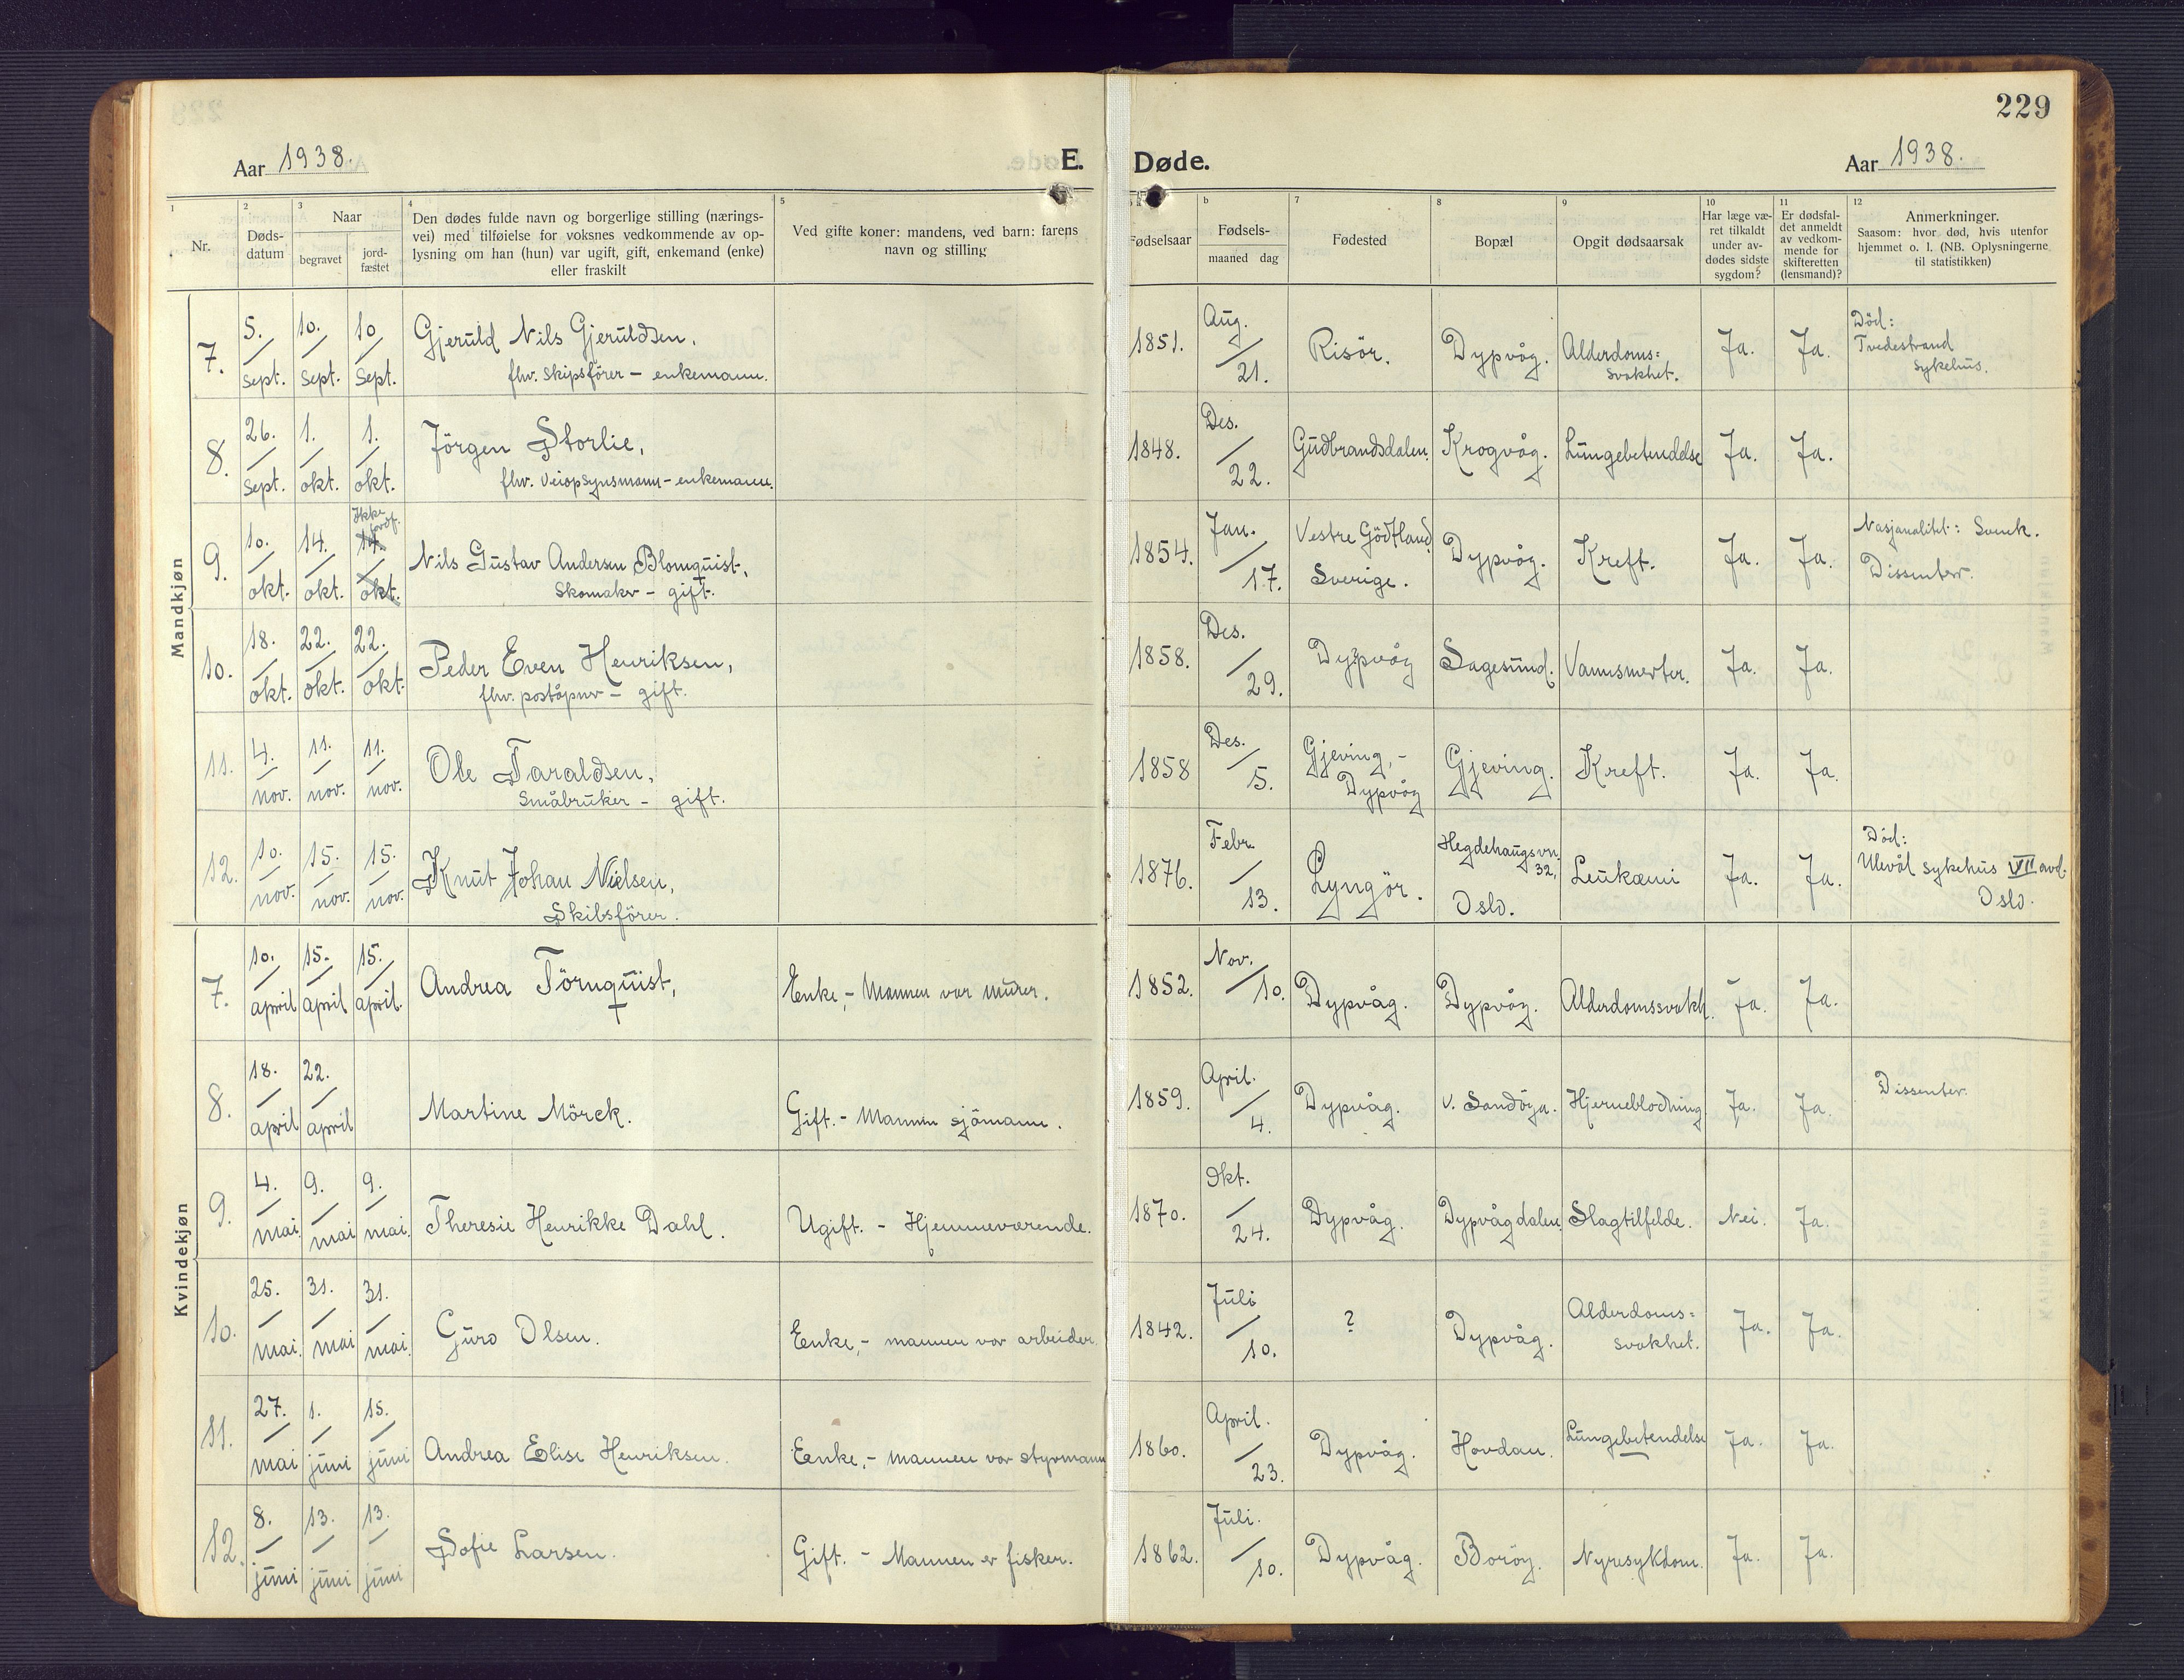 229
Aar 1938.
E. Døde.
Aar 1938.
1
Nr.
2
Døds-
datum
3
Naar
begravet
jord-
fæstet
4
Den dødes fulde navn og borgerlige stilling (nærings-
vei) med tilføielse for voksnes vedkommende av op-
lysning om han (hun) var ugift, gift, enkemand (enke)
eller fraskilt
5
Ved gifte koner: mandens, ved barn: farens
navn og stilling
Fødselsaar
b
Fødsels-
maaned dag
7
Fødested
8
Bopæl
9
Opgit dødsaarsak
10
Har læge væ-
ret tilkaldt
under av-
dødes sidste
sygdom?
11
Er dødsfal-
det anmeldt
av vedkom-
mende for
skifteretten
(lensmand)?
12
Anmerkninger.
Saasom: hvor død, hvis utenfor
hjemmet o. l. (NB. Oplysningerne
til statistikken)
Mandkjøn
7. 5./sept. 10./sept. 10/sept. Gjeruld Nils Gjeruldsen,
fhv. skipsförer – enkemann.
1851. Aug./21. Risör. Dypvåg. Alderdoms=
svakhet. Ja. Ja. Död:
Tvedestrand
sykehus.
8. 26./sept. 1./okt. 1./okt. Jörgen Storlie,
fhv. veiopsynsmann – enkemann.
1848. Des./22. Gudbrandsdalen. Krogvåg. Lungebetendelse Ja. Ja.
9. 10./okt. 14./okt. Ikke jordf. 14./okt. Nils Gustav Andersen Blomquist,
Skomaker – gift.
1854. Jan./17. Vestre Götland
Sverige. Dypvåg. Kreft. Ja. Ja. Nasjonalitet: Svensk.
Dissenter.
10. 18./okt. 22./okt. 22./okt. Peder Even Henriksen,
fhv. poståpner – gift.
1858. Des./29. Dypvåg Sagesund. Vannsmerter. Ja. Ja.
11. 4./nov. 11./nov. 11./nov. Ole Taraldsen,
Småbruker – gift.
1858 Des./5. Gjeving, –
Dypvåg Gjeving. Kreft. Ja. Ja.
12. 10./nov. 15./nov. 15./nov. Knut Johan Nielsen,
Skibsförer.
1876. Febr./13. Lyngör. Hegdehaugsvn.
32,
Oslo. Leukæmi Ja. Ja. Död:
Ulevål sykehus VII avd.
Oslo.
Kvindekjøn
7. 10./april 15./april 15./april. Andrea Törnquist, Enke, – Mannen var murer.
1852. Nov./10. Dypvåg. Dypvåg. Alderdomssvakh. Ja. Ja.
8. 18./april 22./april Martine Mörck. Gift. – Mannen sjömann.
1859. April./4. Dypvåg. V. Sandöya. Hjerneblodning. Ja. Ja. Dissenter.
9. 4./mai. 9./mai 9./mai. Theresie Henrikke Dahl. Ugift. – Hjemmeværende.
1870. Okt./24. Dypvåg. Dypvågdalen. Slagtilfelde. Nei. Ja.
10. 25./mai. 31./mai 31./mai. Guro Olsen. Enke, – mannen var arbeider.
1842. Juli/10. ? Dypvåg. Alderdoms=
svakhet. Ja. Ja.
11. 27./mai 1./juni 15./juni Andrea Elise Henriksen. Enke, – mannen var styrmann
1860. April./23. Dypvåg. Hovdan. Lungebetendelse Ja. Ja.
12. 8./juni 13./juni 13./juni Sofie Larsen. Gift. – Mannen er fisker.
1862. Juli./10. Dypvåg. Boröy. Nyresykdom. Ja. Ja.